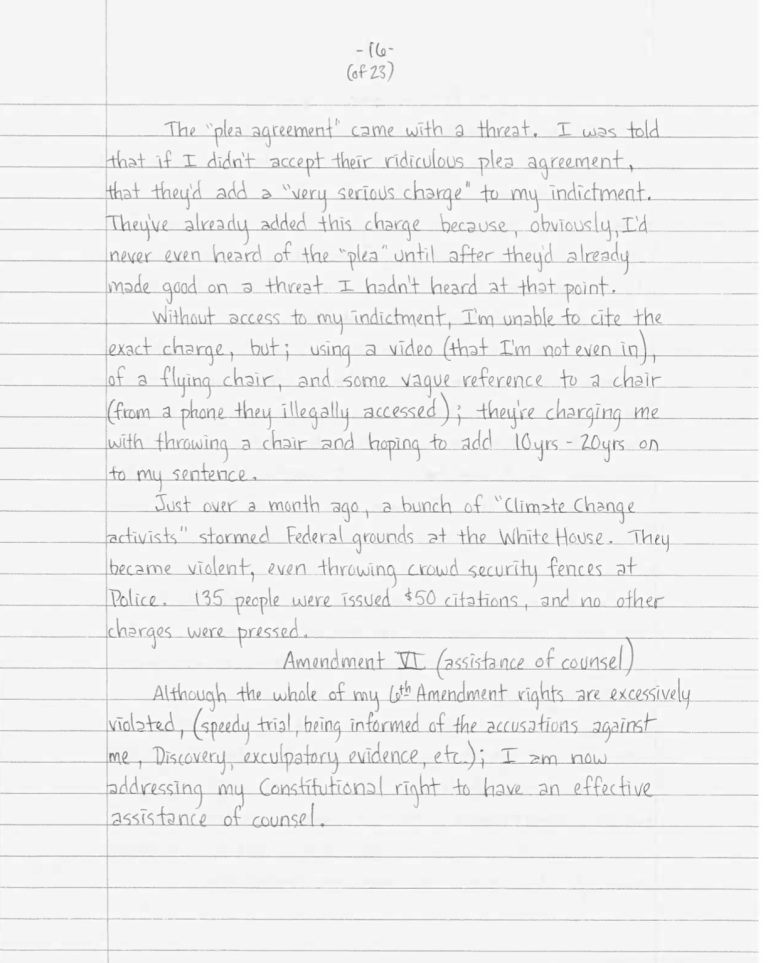 - 16 -
(of 23)
The "plea agreement" came with a threat. I was told
that if I didn't accept their ridiculous plea agreement,
that they'd add a "very serious charge" to my indictment.
They've already added this charge because, obviously, I'd
never even heard of the "plea" until after they'd already
made good on a threat I hadn't heard at that point.
Without access to my indictment, I'm unable to cite the
exact charge, but; using a video (that I'm not even in),
of a flying chair, and some vague reference to a chair
(from a phone they illegally accessed); they're charging me
with throwing a chair and hoping to add 10yrs - 20yrs on
to my sentence.
Just over a month ago, a bunch of "Climate Change
activists" stormed Federal grounds at the White House. They
became violent, even throwing crowd security fences at
Police. 135 people were issued $50 citations, and no other
charges were pressed.
Amendment VI (assistance of counsel)
Although the whole of my 6th Amendment rights are excessively
violated, (speedy trial, being informed of the accusations against
me, Discovery, exculpatory evidence, etc.); I am now
addressing my Constitutional right to have an effective
assistance of counsel.